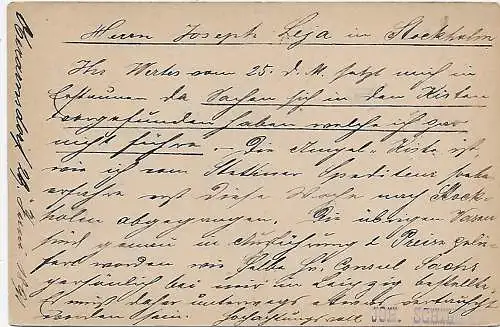 Herrn Joseph Leja in Stockholm
Ihr Werthes vom 25. d. M. setzt mich in
Erstaunen da Sachen sich in den Kisten
vorgefunden haben welche ich gar
nicht führe. – Die Ampel-Kiste ist,
wie ich vom Stettiner Spediteur
erfahre erst diese Woche nach Stock-
holm abgegangen. Die übrigen Vasen
sind genau in Ausführung & Preise gelie-
fert worden wie Selbe Hr. Consul Sachs
persönlich bei mir in Leipzig bestellte.
Es muß daher unterwegs etwas vertauscht
worden sein. Hochachtungsvoll
JOH.